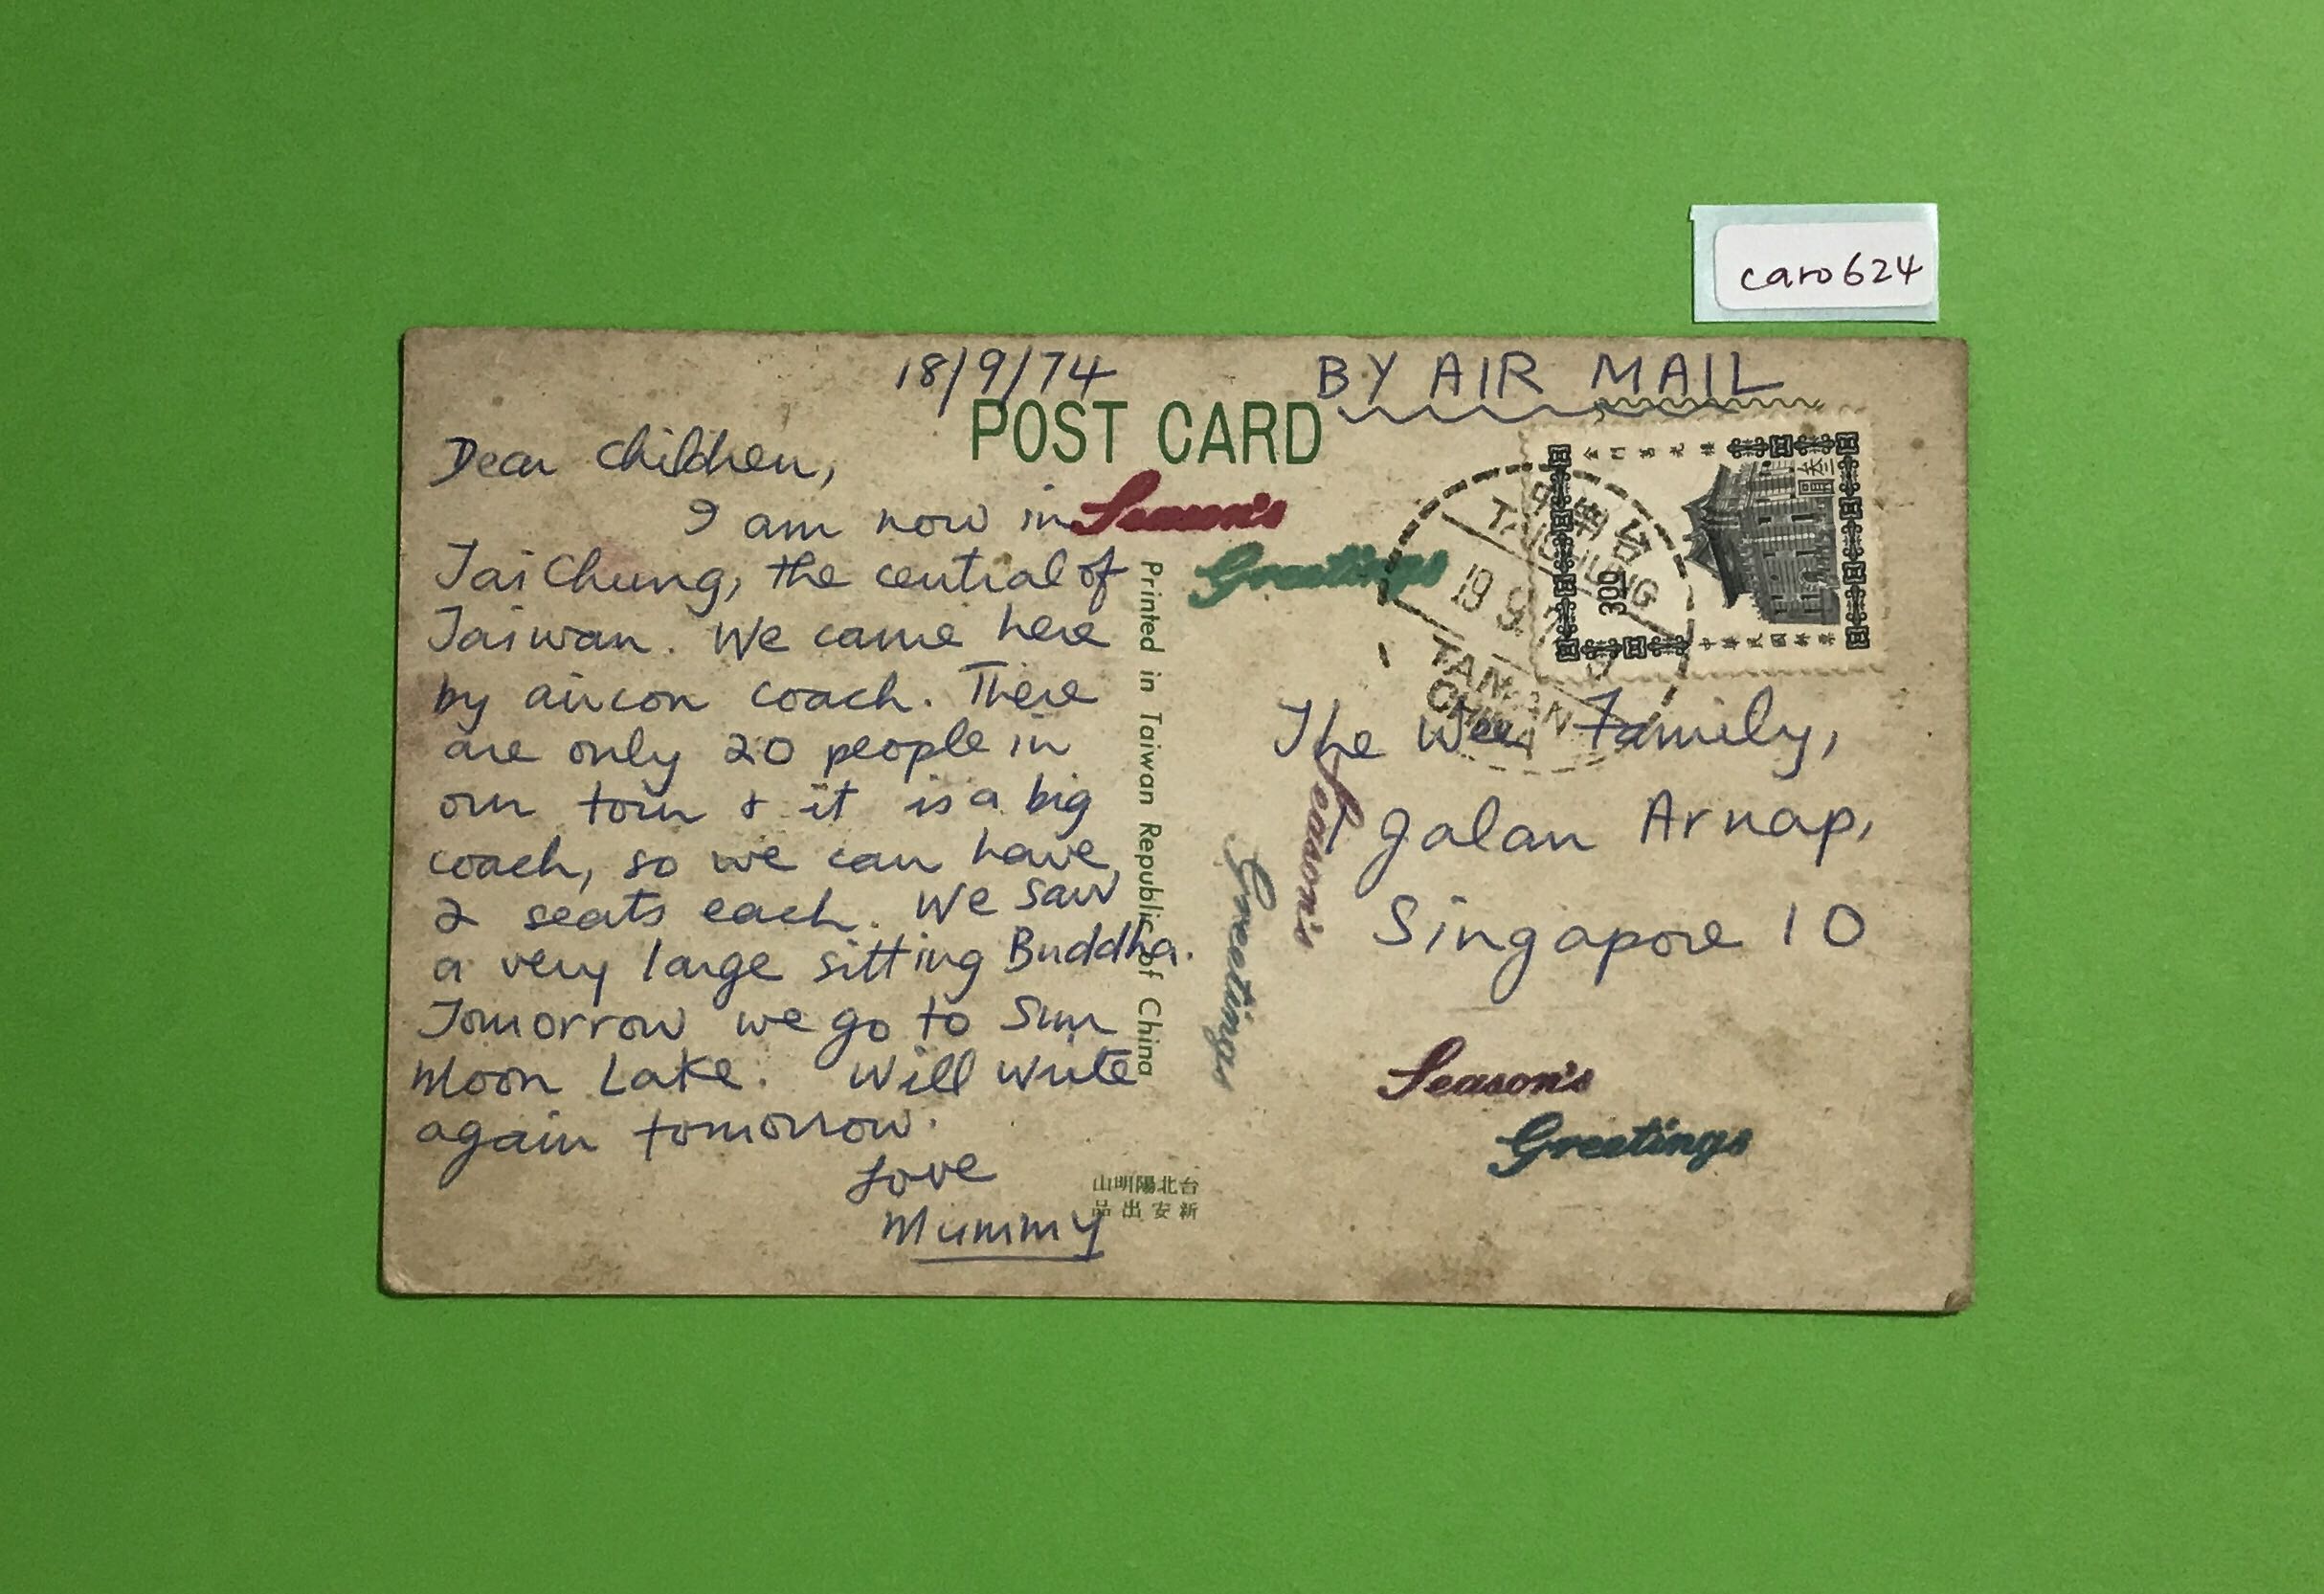 caro624
18/9/74
BY AIR MAIL
POST CARD
Dear Children,
I am now in
TaiChung, the central of
Taiwan. We came here
by aircon coach. There
are only 20 people in
our tour & it is a big
coach, so we can have
2 seats each. We saw
a very large sitting Buddha.
Tomorrow we go to Sun
Moon Lake. Will write
again tomorrow.
Love
Mummy
Season's
Greetings
Printed in Taiwan Republic of China
台北陽明山
新安出品
300
中華民國郵票
叁圓
TAICHUNG
19 9
TAIWAN
CHINA
The Wee Family,
Jalan Arnap,
Singapore 10
Season's
Greetings
Season's
Greetings